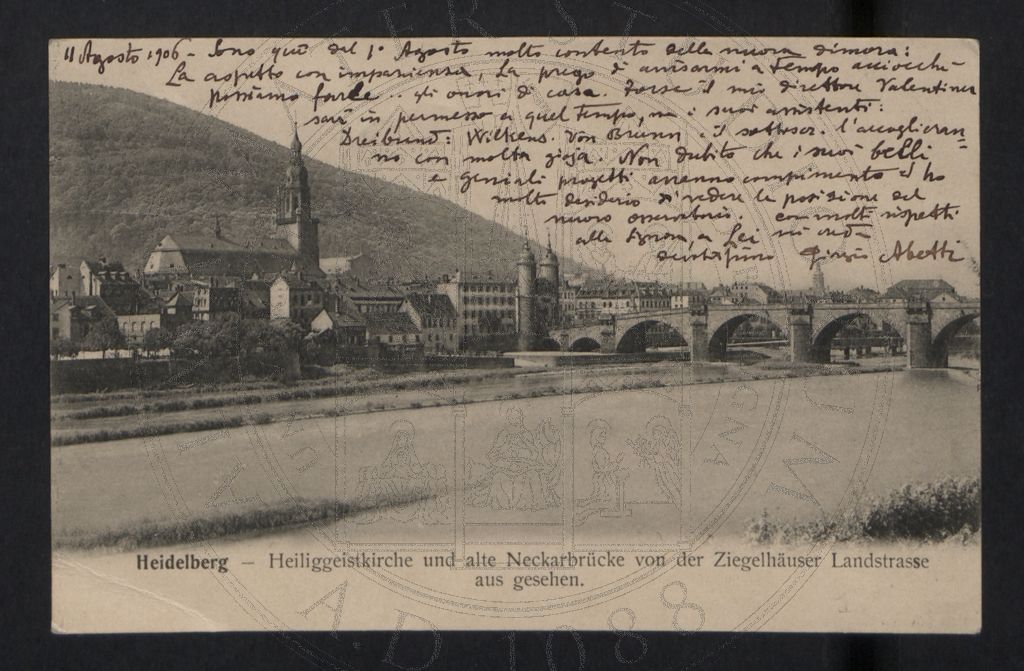 11 Agosto 1906 - Sono quì dal 1° Agosto molto contento della nuova dimora:
La aspetto con impazienza, La prego di avvisarmi a tempo acciocchè
possiamo farle .. gli onori di casa. Forse il mio direttore Valentiner
sarà in permesso a quel tempo, ma i suoi assistenti:
Dreibund: Wilkens. Von Brunn. il sottoscr. l'accoglieran=
no con molta gioja. Non dubito che i suoi belli
e geniali progetti avranno compimento ed ho
molto desiderio di vedere la posizione del
nuovo osservatorio. con molti rispetti
alla Signora, a Lei mi creda
Giorgio Abetti
Heidelberg – Heiliggeistkirche und alte Neckarbrücke von der Ziegelhäuser Landstrasse
aus gesehen.
A.D. 1088